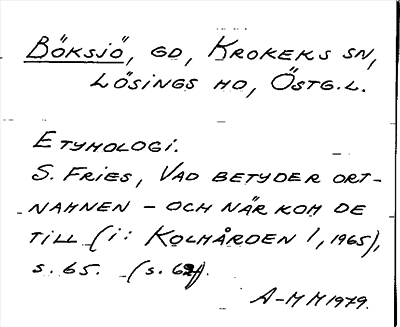 BÖKSJÖ, GD, KROKEKS SN,
LÖSINGS HD, ÖSTG.L.
ETYMOLOGI.
S. FRIES, VAD BETYDER ORT-
NAMNEN – OCH NÄR KOM DE
TILL (i: KOLMÅRDEN 1, 1965),
s. 65. (s. 62f).
A-M M 1979.